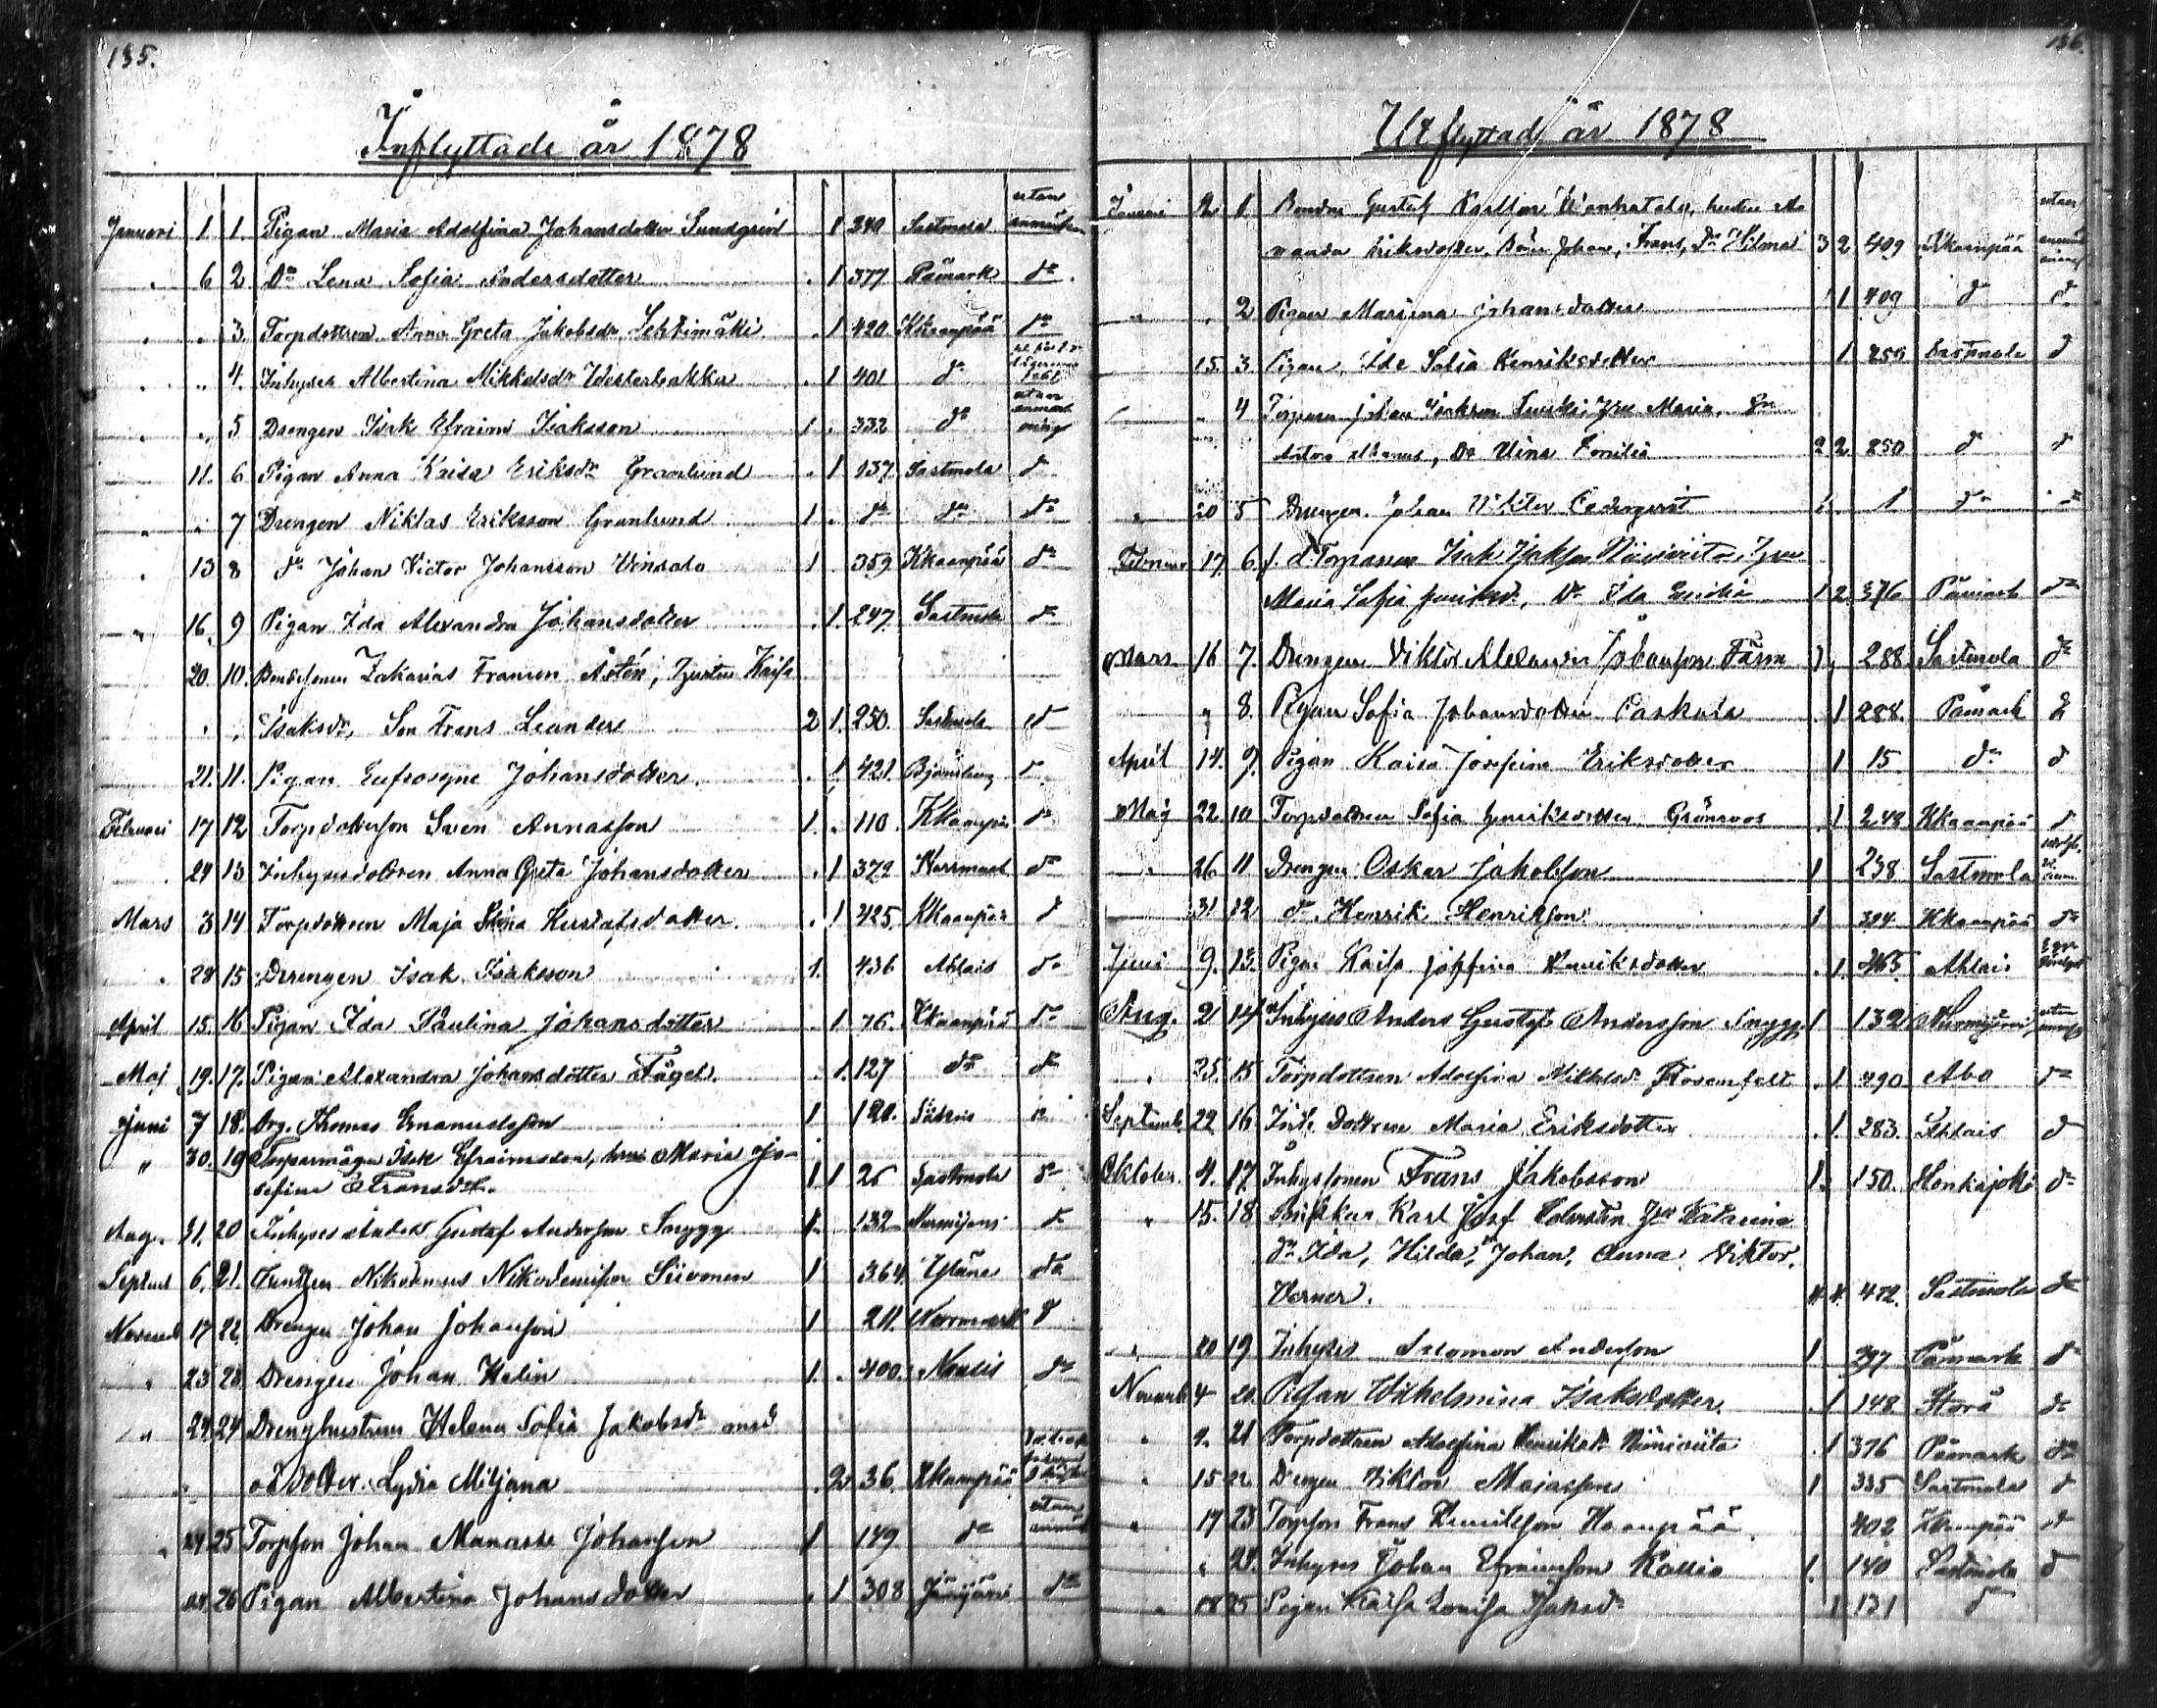 135.
Inflyttade år 1878
utan
Januari 1 1. Pigan Maria Adolfina Johansdotter Sundqvist 1 340 Sastmola anmärkn
" 6 2. Do Lena Sofia Andersdotter . 1 377 Påmark do
" " 3. Torpdottren Anna Greta Jakobsdr Lehtimäki . 1 420 Kkaanpää do
" " 4. Inhyses Albertina Mikkelsdr Westerbakka . 1 401 do
utan
" " 5 Drengen Isak Efraim Isaksson 1 . 332 do
" 11. 6 Pigan Anna Kaisa Eriksdr Granlund . 1 137 Sastmola do
" " 7 Drengen Niklas Eriksson Granlund 1 . do do do
" 13 8 do Johan Victor Johansson Vensalo 1 . 359 Kkaanpää do
" 16. 9 Pigan Ida Alexandra Johansdotter . 1. 247. Sastmola do
20. 10. Bondesonen Zakarias Fransson hustru Kaisa
" " Isaksdr, Son Frans Leander 2 1. 250. Sastmola do
21. 11. Pigan Eufrosyne Johansdotter. . 1 421. Björneborg do
Februari 17 12 Torpdotterson Sven Annasson 1. . 110. Kkaanpää do
24 13 Inhysesdottren Anna Greta Johansdotter . 1 372 Norrmark do
Mars 3 14 Torpdottren Maja Stina Gustafsdotter. . 1 425. Kkaanpää do
" 28 15 Drengen Isak Isaksson 1. 436 Ahlais do
April 15. 16 Pigan Ida Paulina Johansdotter . 1 76. Kkaanpää do
Maj 19. 17. Pigan Alexandra Johansdotter Fågel. . 1. 127 do do
Juni 7 18. Drg. Thomas Emanuelsson 1 120. do
" 30. 19 Torparmågen Isak Efraimsson, hustru Maria Jo-
sefina Fransdr. 1 1 26 Sastmola do
Aug. 31. 20 Inhyses Anders Gustaf Andersson Snygg 1. 132 Nurmijärvi do
Septemb 6. 21. Nikodemus Nikodemusson Siivonen 1 364. Yläne do
Novemb 17 22 Drengen Johan Johansson 1 211. Norrmark do
" 23 23. Drengen Johan Helin 1. . 400. do
" 24. 24 Drenghustrun Helena Sofia Jakobsdr med
oä dotter Lydia Miljana . 2 36. Kkaanpää
utan
" 24. 25 Torpson Johan Manasse Johansson 1 149 do
24. 26 Pigan Albertina Johansdotter . 1 308 Jämijärvi do
136.
Utflyttade år 1878
utan
Januari 2 1 Bonden Gustaf Karlsson hustru
Eriksdotter, Söner Johan, Frans, Dr Hilma 3 2 409 Kkaanpää
" " 2 Pigan Mariina Johansdotter 1 409 do do
15. 3. Pigan Ida Sofia Henriksdotter 1 259 Sastmola do
" 4 Torparen Johan Isaksson hust Maria, Sn
Dr Vina Emilia 2 2. 250 do do
" 20 5 Drengen Johan Viktor Cederqvist 1. 1 do do
Februari 17. 6. f. d. Torparen Isak Isaksson Niiniviita, hust
Maria Sofia Henriksdr, Dr Ida Emilia 1 2 376 Påmark do
Mars 16 7. Drengen Viktor Alexander Johansson Färm 1. 288. Sastmola do
" 8. Pigan Sofia Johansdotter Paskala . 1 288. Påmark do
April 14. 9. Pigan Kaisa Josefina Eriksdotter 1 15 do do
Maj 22. 10 Torpdottren Sofia Henriksdotter Grönroos . 1 248 Kkaanpää do
" 26 11 Drengen Oskar Jakobsson 1 238. Sastmola
31 12 do Henrik Henriksson 1 Kkaanpää do
Juni 9. 13. Pigan Kaisa Josefina Henriksdotter . 1. Ahlais
Aug. 21 14 Inhyses Anders Gustaf Andersson Snygg 1 132 Nurmijärvi utan
" 25. 15 Torpdottren Adolfina Mikkelsdr Rosenfelt . 1 290. Åbo do
Septemb. 22 16 Inh. Dottren Maria Eriksdotter . 1. 283. Ahlais do
Oktober. 4. 17 Inhysesonen Frans Jakobsson 1. 150. Honkajoki do
" 15. 18 Karl Josef Holmstén hust Katarina
dr Ida, Hilda, Johan, Anna, Viktor,
Verner. 4 4. 472. Sastmola do
" 20 19 Inhyses Salomon Andersson 1 397 Påmark do
Novemb 4 20. Pigan Wilhelmina Isaksdotter. . 1 148 Storå do
" 9. 21 Torpdottren Adolfina Henriksdr Niiniviita . 1 376 Påmark do
" 15 22 Drengen Viktor Majasson 1 335 Sastmola do
" 17 23 Torpson Frans Henriksson Haanpää . 402 Kkaanpää do
" 24. Inhyses Johan Efraimsson Kallio 1. 140 Sastmola do
" 18 25 Pigan Kaisa Lovisa Isaksdr 1 131 do